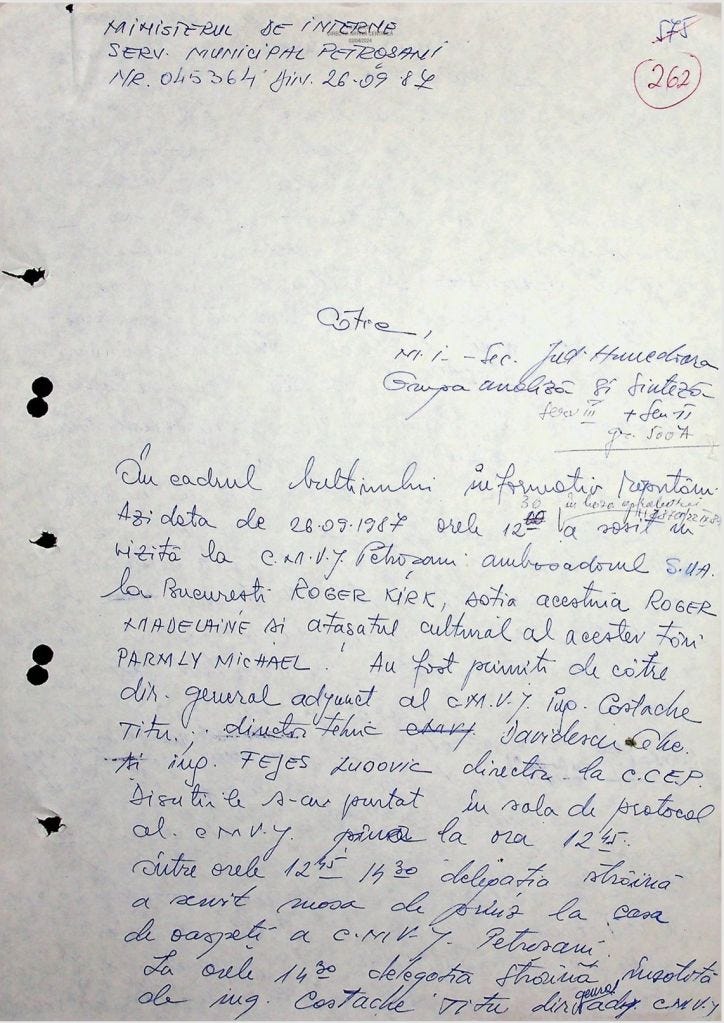 MINISTERUL DE INTERNE
SERV. MUNICIPAL PETROȘANI
NR. 045364 din. 26.09.87
575
262
Către,
M.I. – Sec. Jud. Hunedoara
Grupa analiză și sinteză
Serv III + Serv II
gr. 500 A
În cadrul buletinului informativ raportăm.
Azi data de 26.09.1987 orele 12 30 a sosit în
vizită la C.M.V.J. Petroșani ambasadorul S.U.A.
la București ROGER KIRK, soția acestuia ROGER
MADELAINE și atașatul cultural al acestei țări
PARMLY MICHAEL. Au fost primiți de către
dir. general adjunct al C.M.V.J. ing. Costache
Titu, director tehnic Davidescu
și ing. FEJES LUDOVIC director la C.C.E.P.
Discuțiile s-au purtat în sala de protocol
al C.M.V.J. până la ora 12 45.
Între orele 12 45 14 30 delegația străină
a servit masa de prînz la casa
de oaspeți a C.M.V.J. Petroșani.
La orele 14 30 delegația străină însoțită
de ing. Costache Titu dir. general adj. C.M.V.J